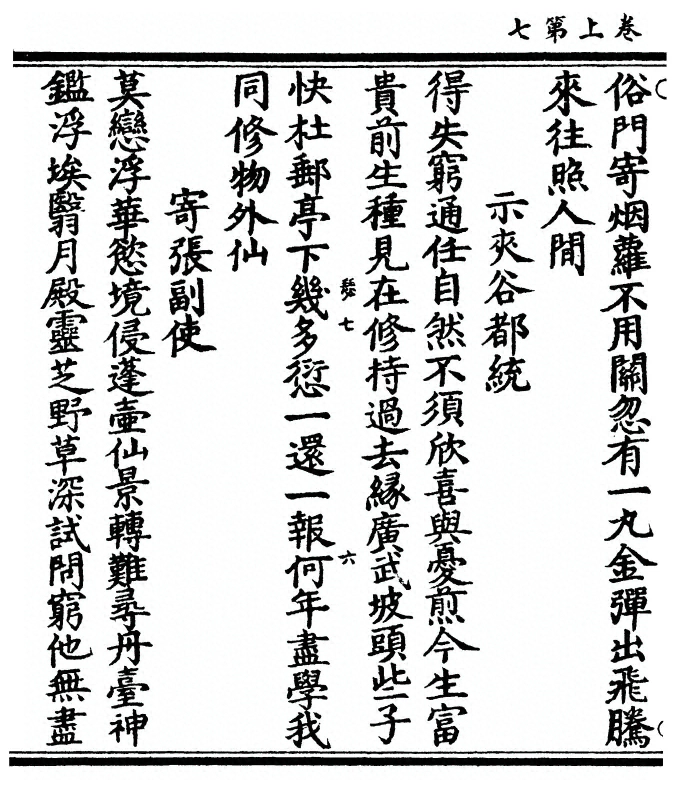 卷上第七
俗門寄烟蘿不用關忽有一丸金彈出飛騰
來往照人間
示夾谷都統
得失窮通任自然不須欣喜與憂煎今生富
貴前生種見在修持過去緣廣武坡頭些子
快杜郵亭下幾多愆一還一報何年盡學我
七
六
同修物外仙
寄張副使
莫戀浮華慾境侵蓬壺仙景轉難尋丹臺神
鑑浮埃翳月殿靈芝野草深試問窮他無盡